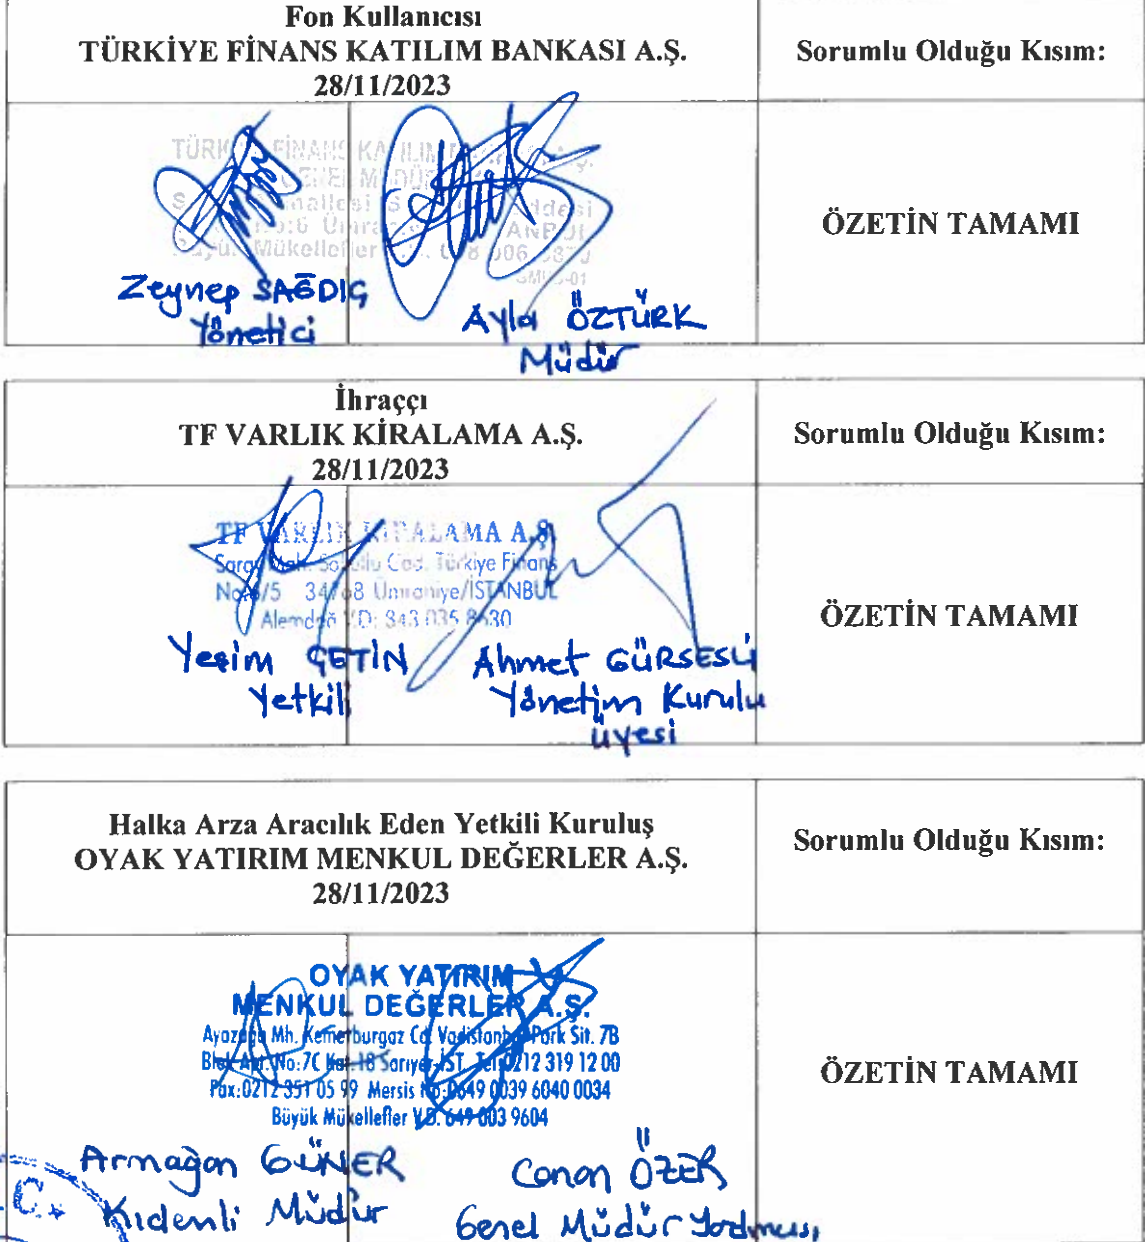 Fon Kullanıcısı
TÜRKİYE FİNANS KATILIM BANKASI A.Ş.
28/11/2023
Sorumlu Olduğu Kısım:
TÜRK FİNANS KATILIM A.Ş.
ÖZETİN TAMAMI
Zeynep SAĞDIÇ
Yönetici
Ayla ÖZTÜRK
Müdür
İhraççı
TF VARLIK KİRALAMA A.Ş.
28/11/2023
Sorumlu Olduğu Kısım:
TF VARLIK KİRALAMA A.Ş.
Saray Mah. Sokullu Cad. Türkiye Finans
34768 Ümraniye/İSTANBUL
Alemdağ V.D: 843 035
ÖZETİN TAMAMI
Yeşim ÇETİN
Yetkili
Ahmet GÜRSESLİ
Yönetim Kurulu
üyesi
Halka Arza Aracılık Eden Yetkili Kuruluş
OYAK YATIRIM MENKUL DEĞERLER A.Ş.
28/11/2023
Sorumlu Olduğu Kısım:
OYAK YATIRIM
MENKUL DEĞERLER A.Ş.
Ayazağa Mh. Kemerburgaz Cd. Vadistanbul Park Sit. 7B
Blok Apt. No:7C Kat:18 Sarıyer-İST. Tel:0212 319 12 00
Fax:0212 351 05 99 Mersis No:0649 0039 6040 0034
Büyük Mükellefler V.D. 649 003 9604
ÖZETİN TAMAMI
Armağan GÜNER
Kıdemli Müdür
Canan ÖZER
Genel Müdür Yardımcısı
C.